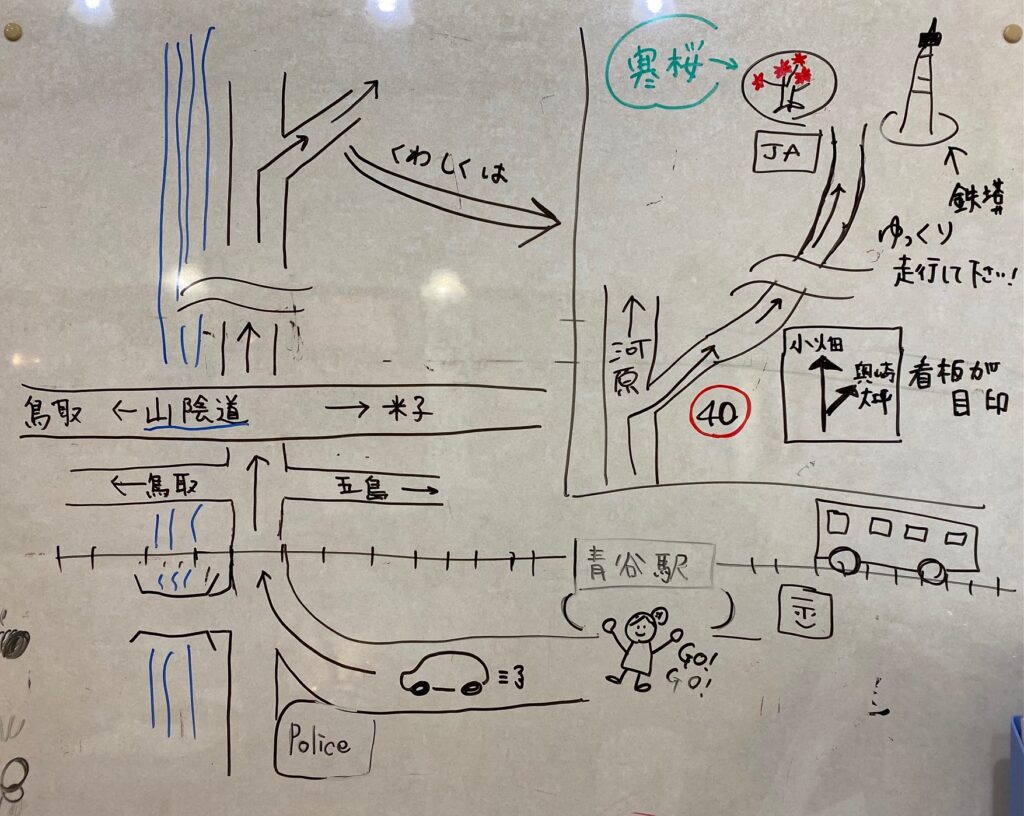 寒桜
JA
鉄塔
くわしくは
ゆっくり
走行して下さい!
河原
小畑
奥崎
大坪
看板が
目印
40
鳥取 ← 山陰道 → 米子
← 鳥取
五島 →
青谷駅
GO!
GO!
Police